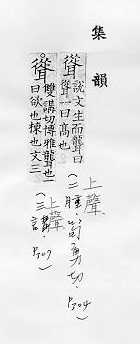 集韻
聳說文生而聾曰
聳一曰高也
上聲
(二腫.筍勇切.
P304)
聳雙講切博雅聾也一
曰欲也悚也文三
上聲
(三講
P307)